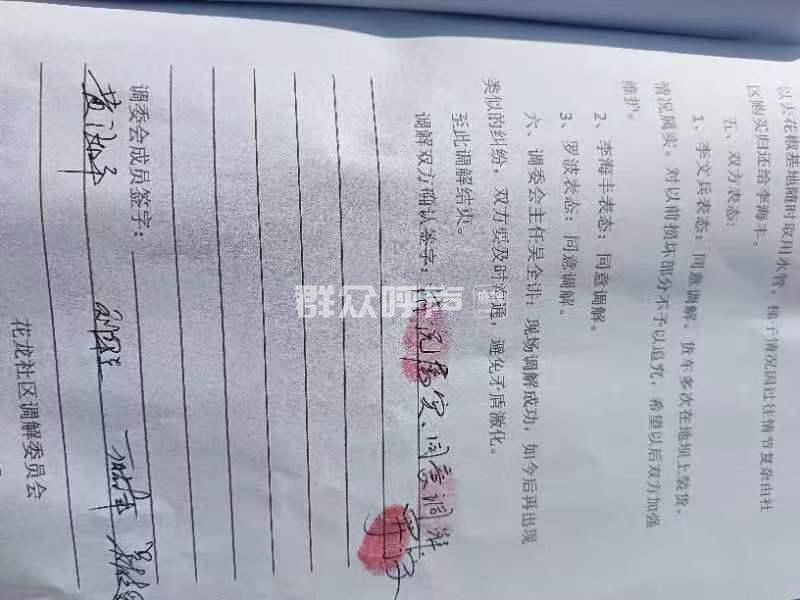 以去花椒基地随时取用水管，梯子情况因过往情节复杂由社
区购买归还给李海丰。
五、双方表态：
1、李文兵表态：同意调解。货车多次在地坝上装货，
情况属实。对以前损坏部分不予以追究，希望以后双方加强
维护。
2、李海丰表态：同意调解。
3、罗波表态：同意调解。
六、调委会主任吴全讲：现场调解成功，如今后再出现
类似的纠纷，双方要及时沟通，避免矛盾激化。
至此调解结页。
调解双方确认签字：情况属实、同意调解
调委会成员签字：
花龙社区调解委员会
群众呼声